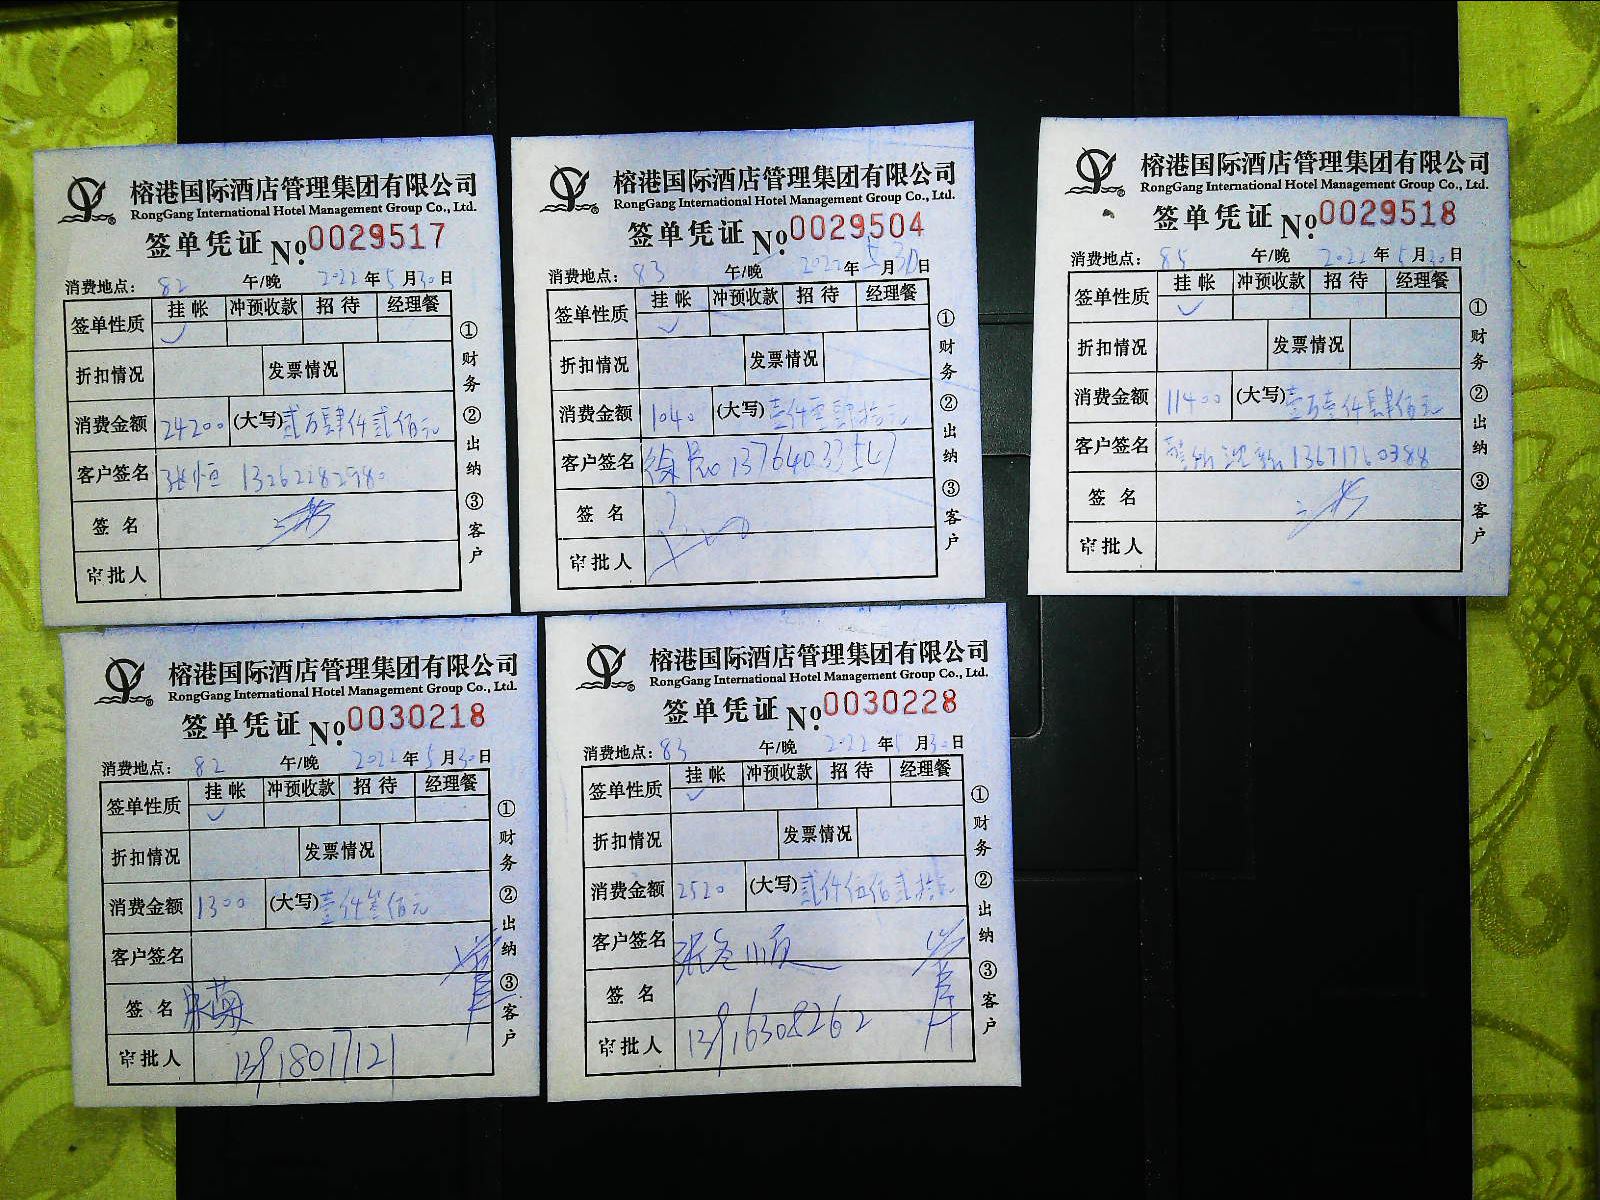 榕港国际酒店管理集团有限公司
RongGang International Hotel Management Group Co., Ltd.
签单凭证 No. 0029517
消费地点: 82 午/晚 2022年5月30日
签单性质 挂帐 冲预收款 招待 经理餐
✓
折扣情况 发票情况
消费金额 24200 (大写) 贰万肆仟贰佰元
客户签名 张恒 13262282980
签名
审批人
①财务 ②出纳 ③客户
榕港国际酒店管理集团有限公司
RongGang International Hotel Management Group Co., Ltd.
签单凭证 No. 0029504
消费地点: 83 午/晚 2022年5月30日
签单性质 挂帐 冲预收款 招待 经理餐
✓
折扣情况 发票情况
消费金额 1040 (大写) 壹仟零肆拾元
客户签名 徐 13764033547
签名
审批人
①财务 ②出纳 ③客户
榕港国际酒店管理集团有限公司
RongGang International Hotel Management Group Co., Ltd.
签单凭证 No. 0029518
消费地点: 85 午/晚 2022年5月30日
签单性质 挂帐 冲预收款 招待 经理餐
✓
折扣情况 发票情况
消费金额 11400 (大写) 壹万壹仟肆佰元
客户签名 13671760388
签名
审批人
①财务 ②出纳 ③客户
榕港国际酒店管理集团有限公司
RongGang International Hotel Management Group Co., Ltd.
签单凭证 No. 0030218
消费地点: 82 午/晚 2022年5月30日
签单性质 挂帐 冲预收款 招待 经理餐
✓
折扣情况 发票情况
消费金额 1300 (大写) 壹仟叁佰元
客户签名
签名
审批人 13918017121
①财务 ②出纳 ③客户
榕港国际酒店管理集团有限公司
RongGang International Hotel Management Group Co., Ltd.
签单凭证 No. 0030228
消费地点: 83 午/晚 2022年5月30日
签单性质 挂帐 冲预收款 招待 经理餐
✓
折扣情况 发票情况
消费金额 2520 (大写) 贰仟伍佰贰拾元
客户签名 张
签名
审批人 13916308262
①财务 ②出纳 ③客户